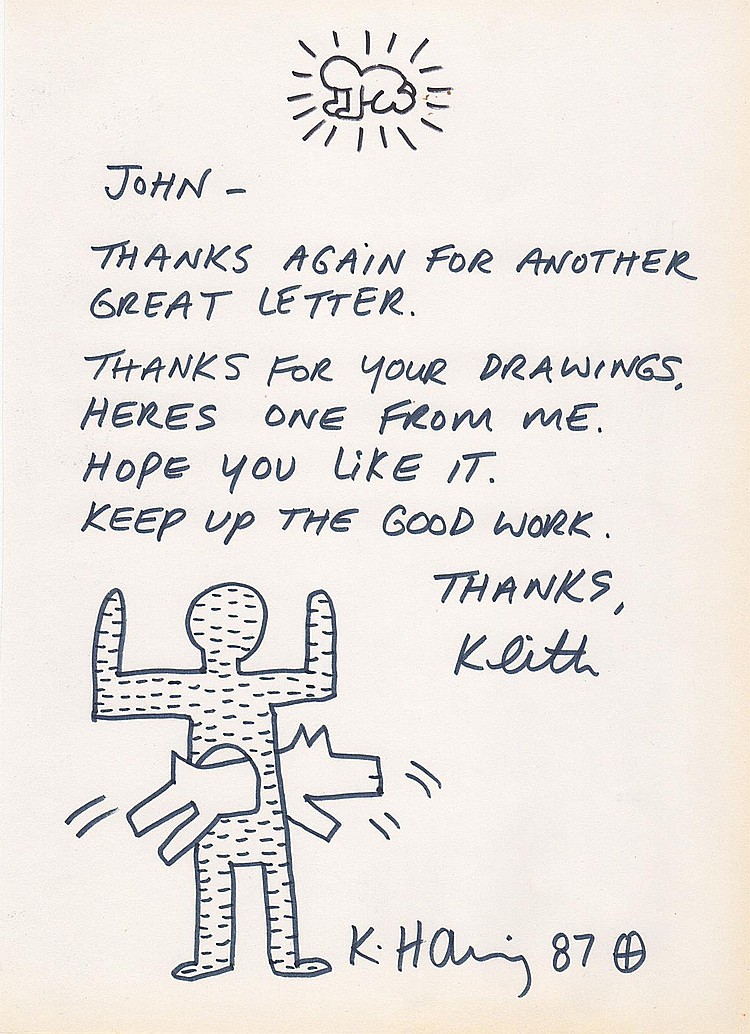 JOHN –
THANKS AGAIN FOR ANOTHER
GREAT LETTER.
THANKS FOR YOUR DRAWINGS,
HERES ONE FROM ME.
HOPE YOU LIKE IT.
KEEP UP THE GOOD WORK.
THANKS,
Keith
K. Haring 87 ⊕